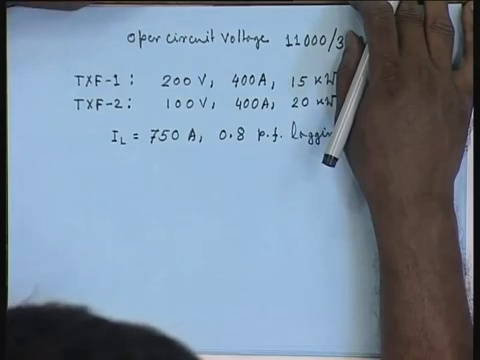 open circuit voltage 11000/3
TXF-1: 200 V, 400A, 15 KW
TXF-2: 100 V, 400A, 20 KW
IL = 750 A, 0.8 p.f. laggin